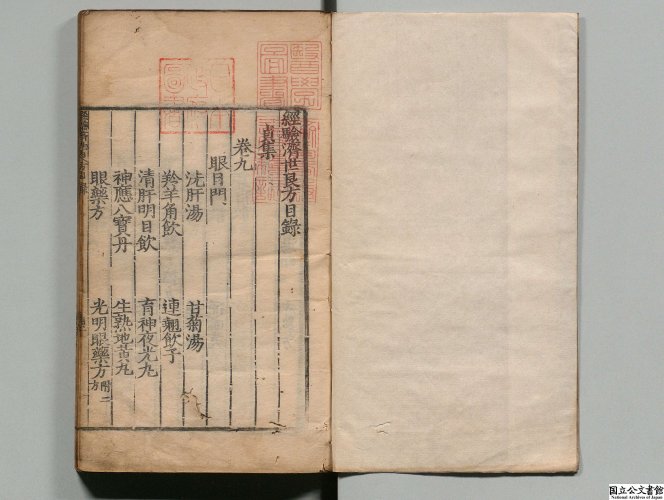 經驗濟世良方目錄
貞集
卷九
眼目門
洗肝湯　甘菊湯
羚羊角飲　連翹飲子
清肝明目飲　育神夜光丸
神應八寶丹　生熟地黃丸
眼藥方　光明眼藥方附二方
国立公文書館
National Archives of Japan